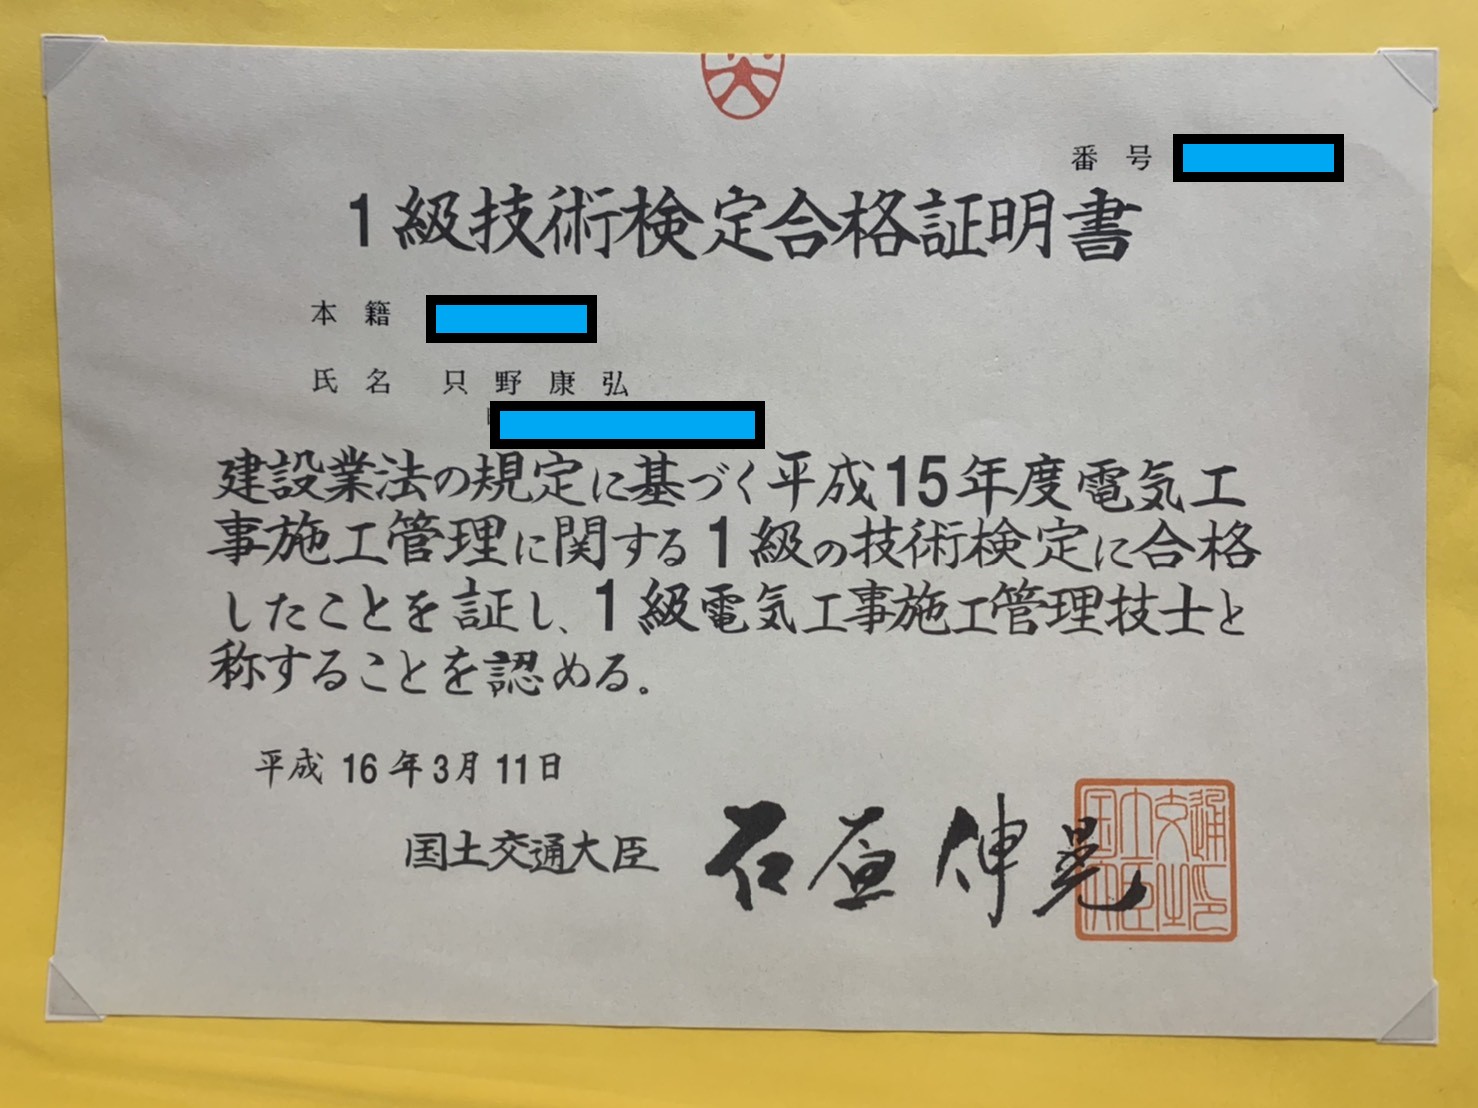 番号
1級技術検定合格証明書
本籍
氏名 只野康弘
建設業法の規定に基づく平成15年度電気工
事施工管理に関する1級の技術検定に合格
したことを証し、1級電気工事施工管理技士と
称することを認める。
平成16年3月11日
国土交通大臣 石原伸晃